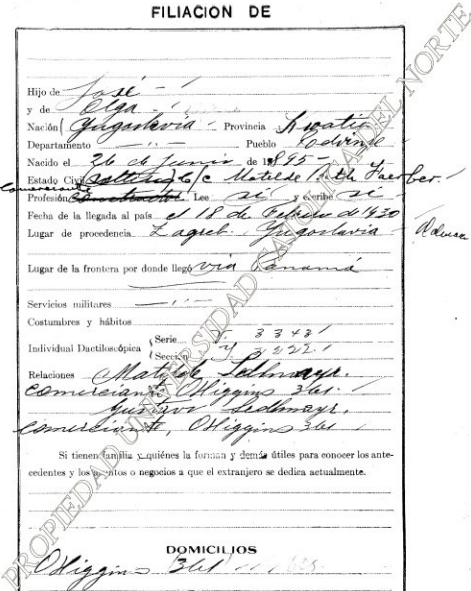 FILIACION DE
Hijo de José
y de Olga
Nación Yugoslavia Provincia Kroatia
Departamento Pueblo
Nacido el 26 de Junio de 1895
Estado Civil c/c Matilde Faerber.
comerciante
Profesión Lee sí y escribe sí
Fecha de la llegada al país el 18 de Febrero de 1930
Lugar de procedencia Zagreb. Yugoslavia
Lugar de la frontera por donde llegó vía Panamá
Servicios militares
Costumbres y hábitos
Individual Dactiloscópica
Serie V 3343
Sección 3222
Relaciones Matilde Sedlmayr.
comerciante O'Higgins 361.
Gustavo Sedlmayr.
comerciante, O'Higgins 361
Si tienen familia y quiénes la forman y demás útiles para conocer los ante-
cedentes y los asuntos o negocios a que el extranjero se dedica actualmente.
DOMICILIOS
O'Higgins 361
PROPIEDAD UNIVERSIDAD CATOLICA DEL NORTE